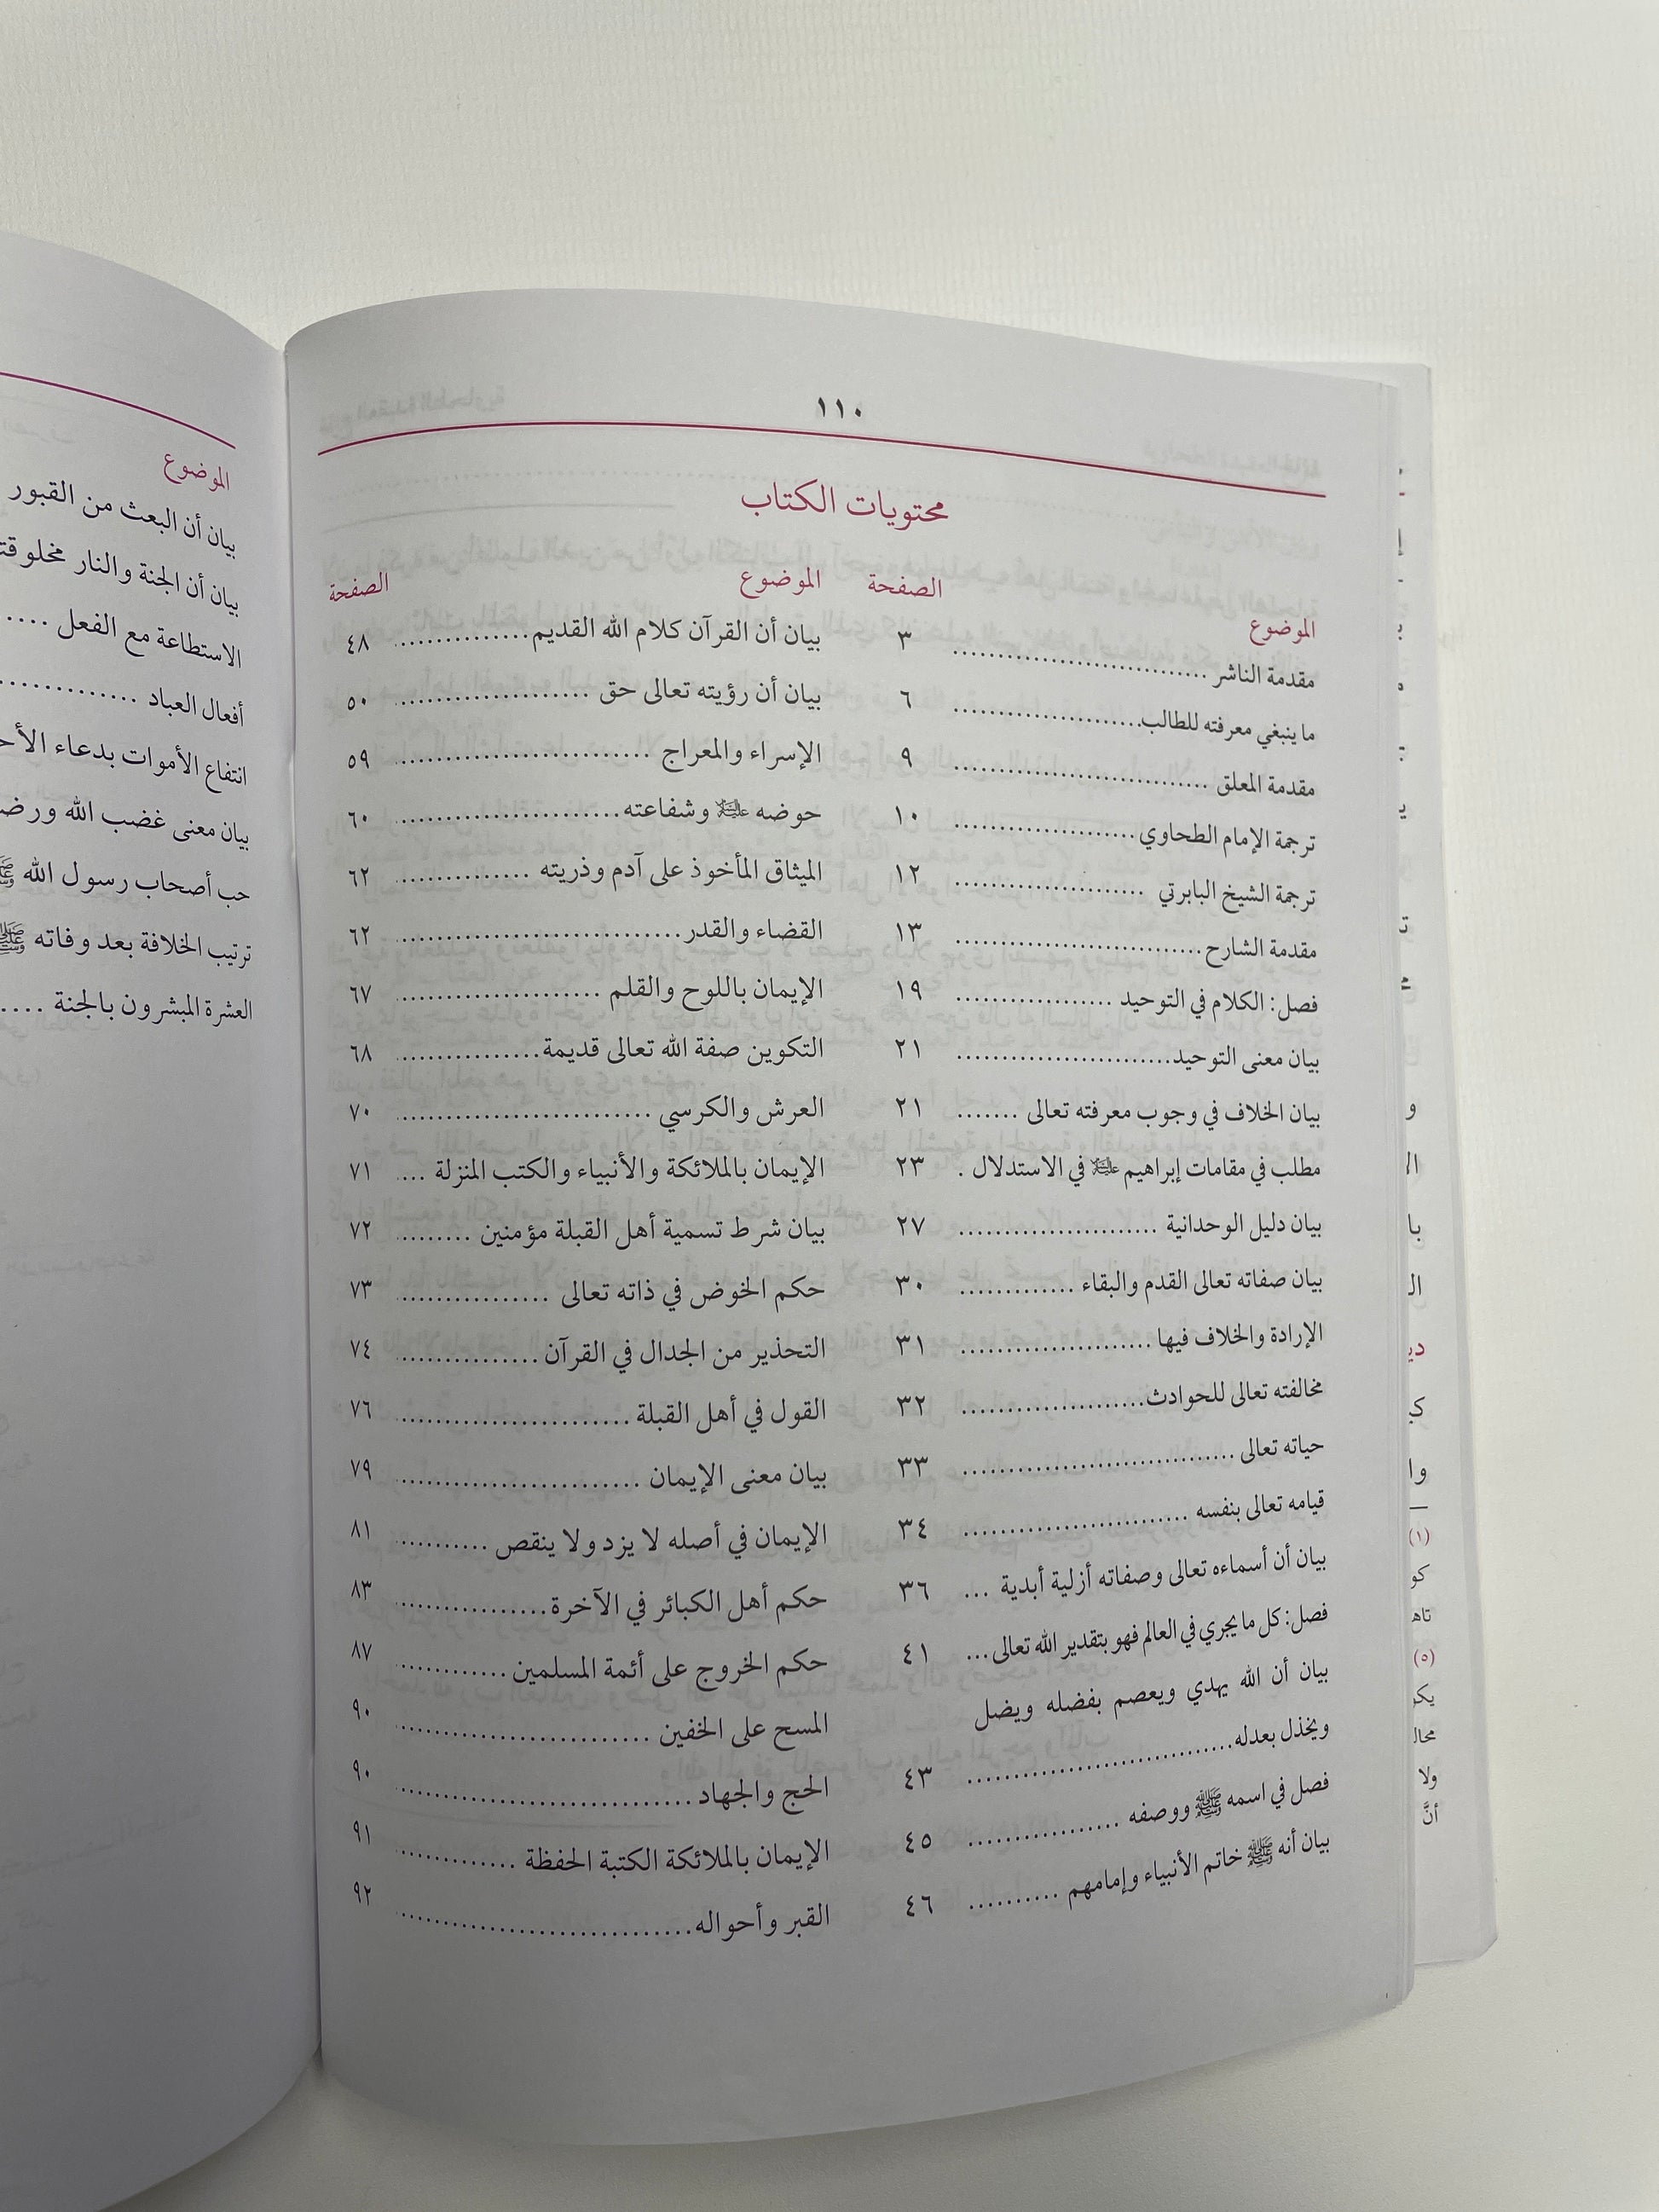 ١١٠
محتويات الكتاب
الموضوع الصفحة
مقدمة الناشر ٣
ما ينبغي معرفته للطالب ٦
مقدمة المعلق ٩
ترجمة الإمام الطحاوي ١٠
ترجمة الشيخ البابرتي ١٢
مقدمة الشارح ١٣
فصل: الكلام في التوحيد ١٩
بيان معنى التوحيد ٢١
بيان الخلاف في وجوب معرفته تعالى ٢١
مطلب في مقامات إبراهيم عليه السلام في الاستدلال ٢٣
بيان دليل الوحدانية ٢٧
بيان صفاته تعالى القدم والبقاء ٣٠
الإرادة والخلاف فيها ٣١
مخالفته تعالى للحوادث ٣٢
حياته تعالى ٣٣
قيامه تعالى بنفسه ٣٤
بيان أن أسماءه تعالى وصفاته أزلية أبدية ٣٦
فصل: كل ما يجري في العالم فهو بتقدير الله تعالى ٤١
بيان أن الله يهدي ويعصم بفضله ويضل
ويخذل بعدله ٤٣
فصل في اسمه ﷺ ووصفه ٤٥
بيان أنه ﷺ خاتم الأنبياء وإمامهم ٤٦
الموضوع الصفحة
بيان أن القرآن كلام الله القديم ٤٨
بيان أن رؤيته تعالى حق ٥٠
الإسراء والمعراج ٥٩
حوضه عليه السلام وشفاعته ٦٠
الميثاق المأخوذ على آدم وذريته ٦٢
القضاء والقدر ٦٢
الإيمان باللوح والقلم ٦٧
التكوين صفة الله تعالى قديمة ٦٨
العرش والكرسي ٧٠
الإيمان بالملائكة والأنبياء والكتب المنزلة ٧١
بيان شرط تسمية أهل القبلة مؤمنين ٧٢
حكم الخوض في ذاته تعالى ٧٣
التحذير من الجدال في القرآن ٧٤
القول في أهل القبلة ٧٦
بيان معنى الإيمان ٧٩
الإيمان في أصله لا يزد ولا ينقص ٨١
حكم أهل الكبائر في الآخرة ٨٣
حكم الخروج على أئمة المسلمين ٨٧
المسح على الخفين ٩٠
الحج والجهاد ٩٠
الإيمان بالملائكة الكتبة الحفظة ٩١
القبر وأحواله ٩٢
الموضوع
بيان أن البعث من القبور
بيان أن الجنة والنار
الاستطاعة مع الفعل
أفعال العباد
انتفاع الأموات بدعاء
بيان معنى غضب الله
حب أصحاب رسول الله ﷺ
ترتيب الخلافة بعد وفاته ﷺ
العشرة المبشرون بالجنة